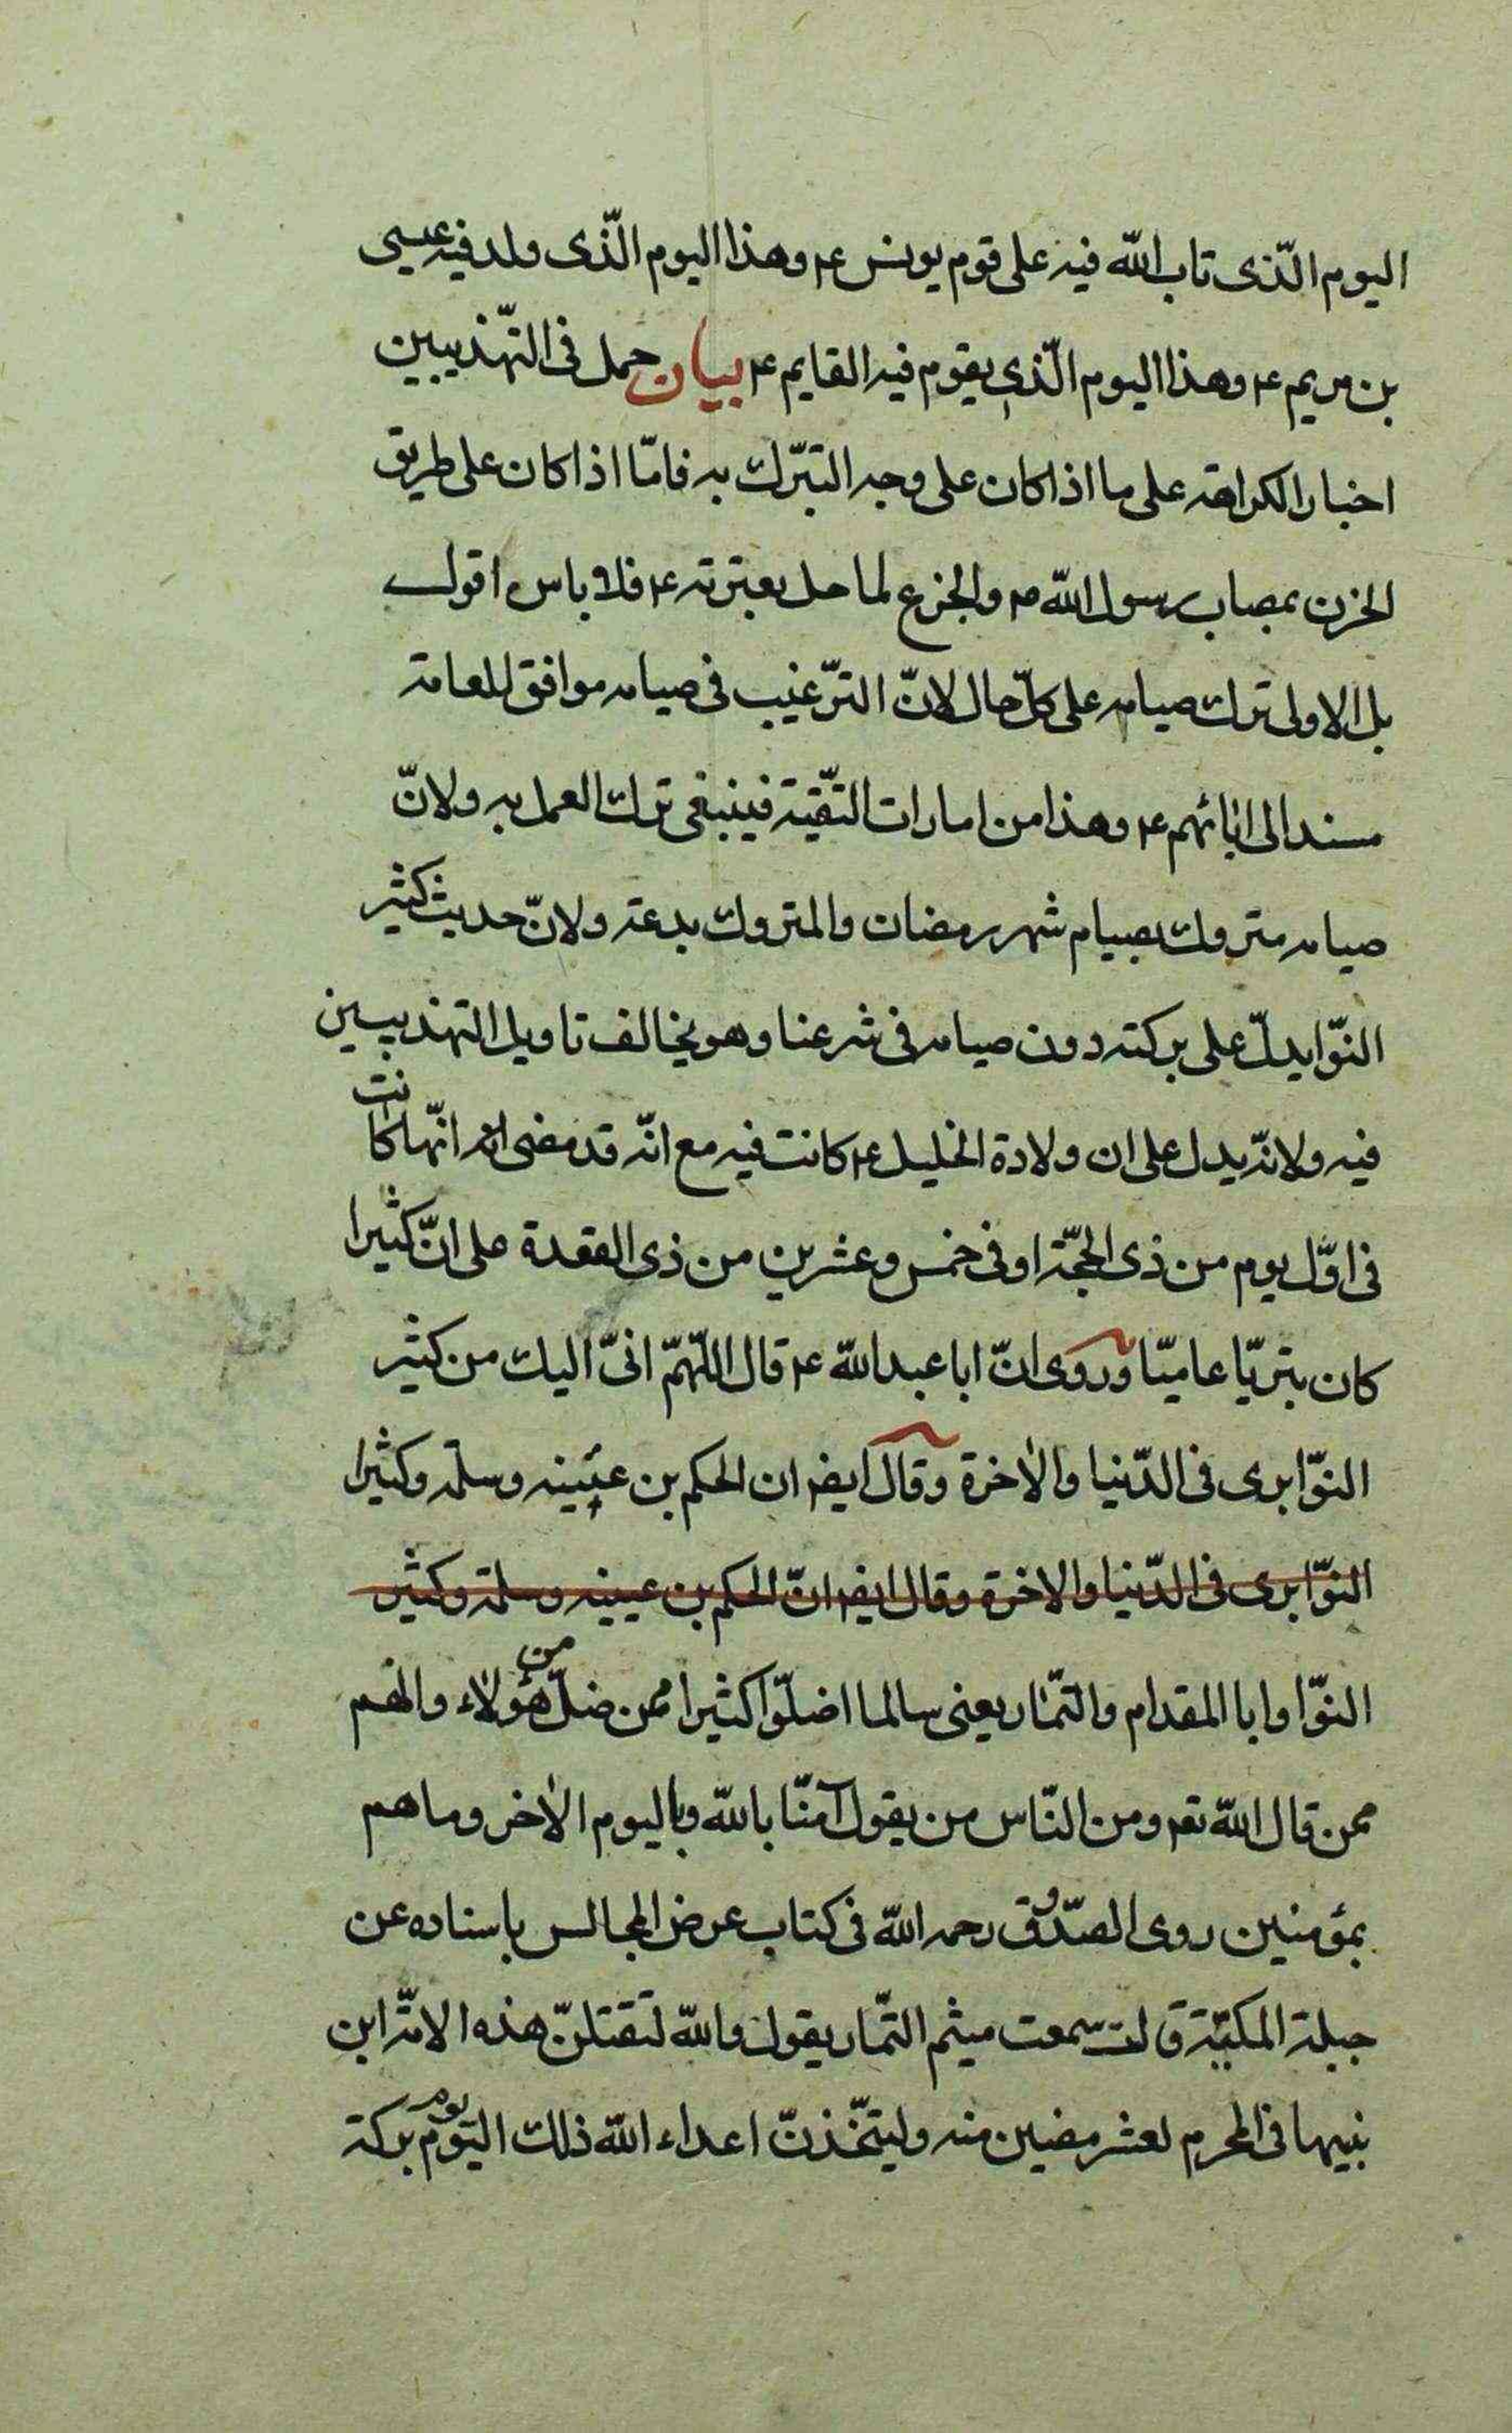 اليوم الّذى تاب الله فيه على قوم يونس ع وهذا اليوم الّذى ولد فيه عيسى
بن مريم ع وهذا اليوم الّذى يقوم فيه القايم ع بيان حمل فى التّهذيبين
اخبار الكراهة على ما اذا كان على وجه التبرّك به فامّا اذا كان على طريق
الحزن بمصاب رسول الله ص والجزع لما حل بعترته ع فلا باس اقول
بل الاولى ترك صيامه على كلّ حال لانّ الترّغيب فى صيامه موافق للعامة
مسند الى ابائهم ع وهذا من امارات التّقيّة فينبغى ترك العمل به ولانّ
صيامه متروك بصيام شهر رمضان والمتروك بدعة ولانّ حديث كثير
النوّا يدلّ على بركته دون صيامه فى شرعنا وهو يخالف تاويل التهذيبين
فيه ولانّه يدل على ان ولادة الخليل ع كانت فيه مع انّه قد مضى انها انّها كانت
فى اوّل يوم من ذى الحجّة او فى خمس وعشرين من ذى القعدة على انّ كثيرا
كان بتريّا عاميّا وروى انّ ابا عبد الله ع قال اللّهمّ انّى اليك من كثير
النوّا برى فى الدّنيا والاخرة وقال ايضا ان الحكم بن عيينه وسلمة وكثيرا
النوّا برى فى الدّنيا والاخرة وقال ايضا انّ الحكم بن عيينه وسلمة وكثير
النوّا وابا المقدام والتمّار يعنى سالما اضلّوا كثيرا ممن ضلّ من هؤلاء وانهم
ممن قال الله تعه ومن النّاس من يقول آمنّا بالله وباليوم الاخر وما هم
بمؤمنين روى الصّدوق رحمه الله فى كتاب عرض المجالس باسناده عن
جبلة المكيّة قالت سمعت ميثم التّمار يقول والله لتقتلنّ هذه الامّة ابن
نبيها فى المحرم لعشر مضين منه وليتخّذنّ اعداء الله ذلك اليوم يوم بركة